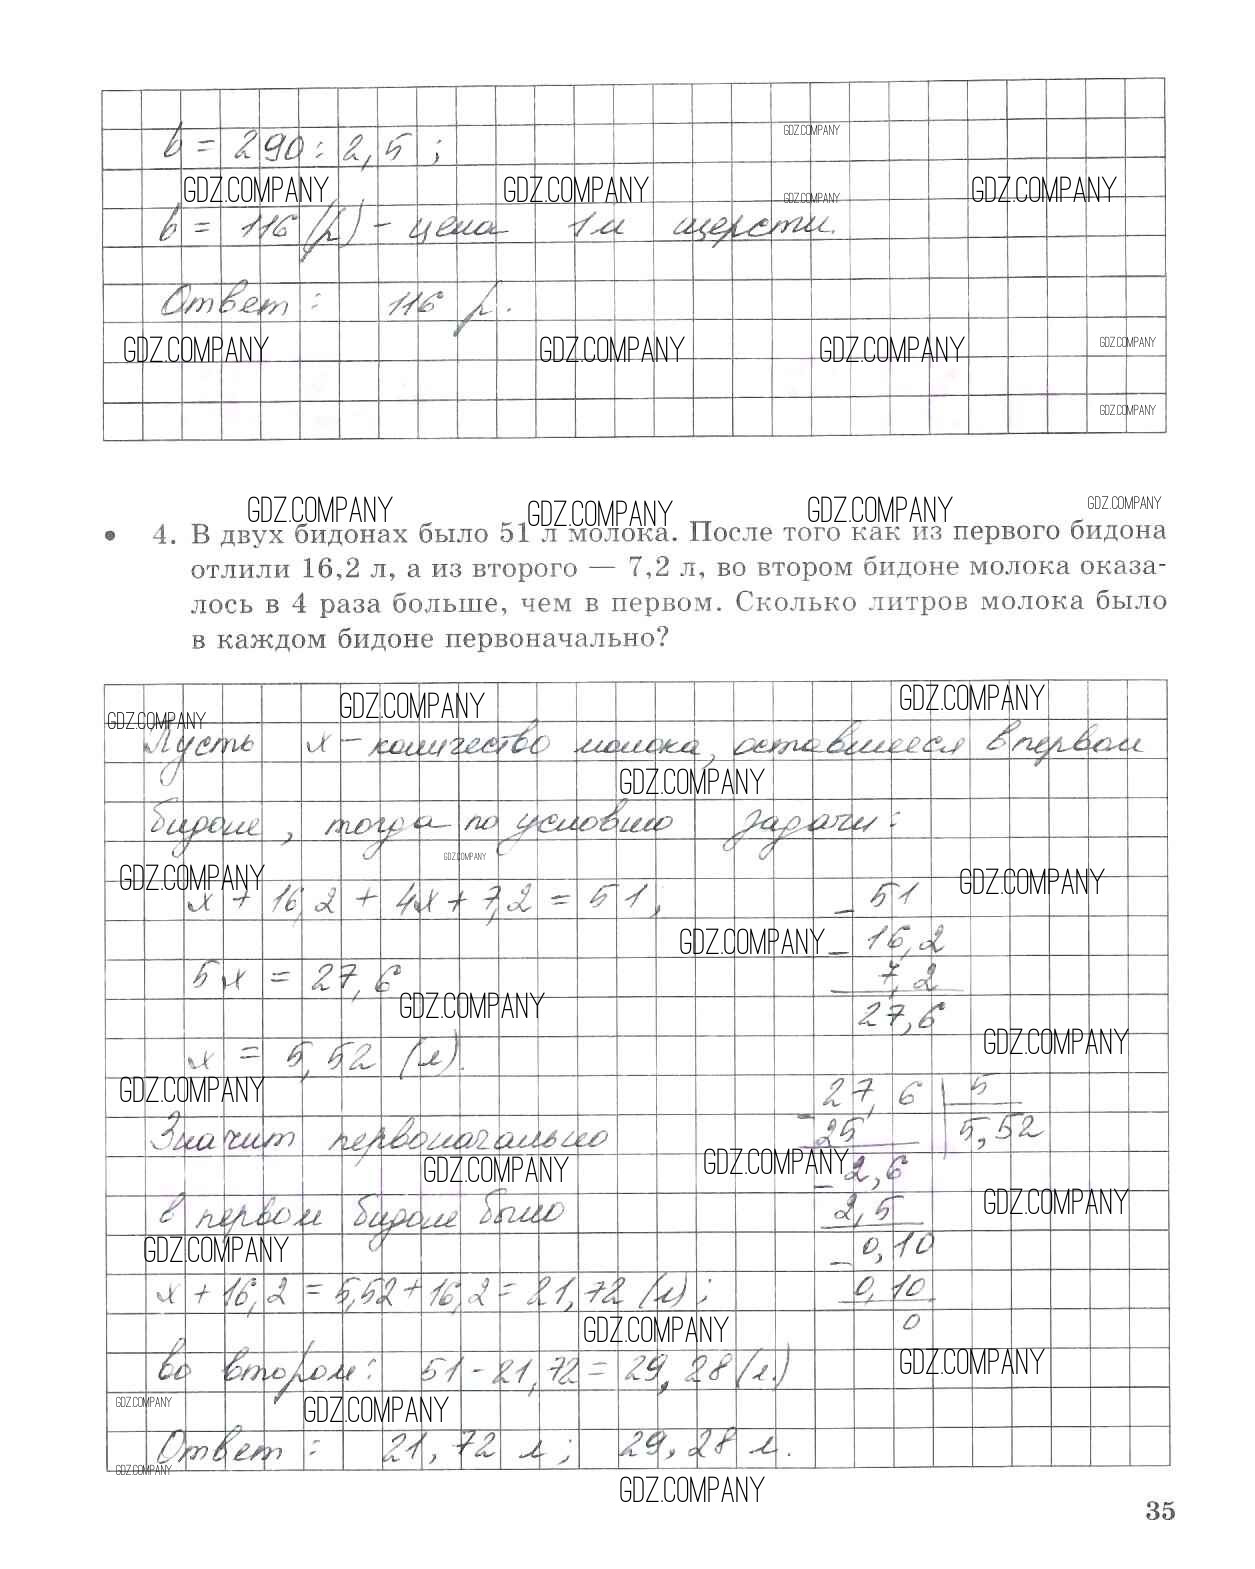 b = 290 : 2,5 ;
GDZ.COMPANY
GDZ.COMPANY GDZ.COMPANY GDZ.COMPANY GDZ.COMPANY
b = 116 (р) - цена 1 м шерсти.
Ответ : 116 р.
GDZ.COMPANY GDZ.COMPANY GDZ.COMPANY GDZ.COMPANY
GDZ.COMPANY
GDZ.COMPANY GDZ.COMPANY GDZ.COMPANY GDZ.COMPANY
• 4. В двух бидонах было 51 л молока. После того как из первого бидона
отлили 16,2 л, а из второго — 7,2 л, во втором бидоне молока оказа-
лось в 4 раза больше, чем в первом. Сколько литров молока было
в каждом бидоне первоначально?
GDZ.COMPANY GDZ.COMPANY GDZ.COMPANY
Пусть x - количество молока, оставшееся в первом
GDZ.COMPANY
бидоне, тогда по условию задачи:
GDZ.COMPANY
GDZ.COMPANY GDZ.COMPANY
x + 16,2 + 4x + 7,2 = 51; - 51
GDZ.COMPANY - 16,2
5x = 27,6 7,2
GDZ.COMPANY 27,6
GDZ.COMPANY
x = 5,52 (л).
GDZ.COMPANY - 27,6 | 5
Значит первоначально 25 5,52
GDZ.COMPANY GDZ.COMPANY - 2,6
в первом бидоне было 2,5 GDZ.COMPANY
GDZ.COMPANY - 0,10
x + 16,2 = 5,52 + 16,2 = 21,72 (л); 0,10
GDZ.COMPANY 0
во втором: 51 - 21,72 = 29,28 (л.) GDZ.COMPANY
GDZ.COMPANY GDZ.COMPANY
Ответ : 21,72 л; 29,28 л.
GDZ.COMPANY
GDZ.COMPANY
35